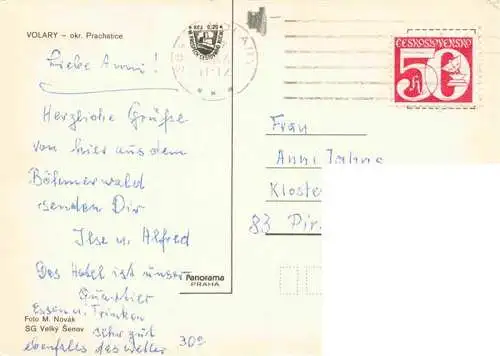 VOLARY – okr. Prachatice
Liebe Anni!
Herzliche Grüße
von hier aus dem
Böhmerwald
senden Dir
Ilse u. Alfred
Das Hotel ist unser
Quartier
Essen u. Trinken
sehr gut
ebenfalls das Wetter
Foto M. Novák
SG Velký Šenov
309
Panorama
PRAHA
ČESKOSLOVENSKO
50 h
Frau
Anni Jahns
Kloster
83 Pir